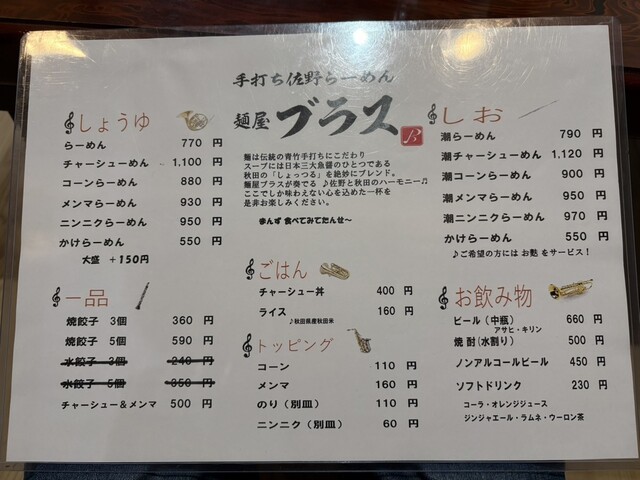 手打ち佐野らーめん
麺屋 ブラス
B
麺は伝統の青竹手打ちにこだわり
スープには日本三大魚醤のひとつである
秋田の「しょっつる」を絶妙にブレンド。
麺屋ブラスが奏でる ♪佐野と秋田のハーモニー♫
ここでしか味わえない心を込めた一杯を
是非お楽しみください。
まんず 食べてみてたんせ～
しょうゆ
らーめん 770 円
チャーシューめん 1,100 円
コーンらーめん 880 円
メンマらーめん 930 円
ニンニクらーめん 950 円
かけらーめん 550 円
大盛 +150円
しお
潮らーめん 790 円
潮チャーシューめん 1,120 円
潮コーンらーめん 900 円
潮メンマらーめん 950 円
潮ニンニクらーめん 970 円
かけらーめん 550 円
♪ご希望の方には お麩 をサービス！
一品
焼餃子 3個 360 円
焼餃子 5個 590 円
水餃子 3個 240 円
水餃子 5個 350 円
チャーシュー＆メンマ 500 円
ごはん
チャーシュー丼 400 円
ライス 160 円
♪秋田県産秋田米
トッピング
コーン 110 円
メンマ 160 円
のり（別皿） 110 円
ニンニク（別皿） 60 円
お飲み物
ビール（中瓶） 660 円
アサヒ・キリン
焼酎(水割り) 500 円
ノンアルコールビール 450 円
ソフトドリンク 230 円
コーラ・オレンジジュース
ジンジャエール・ラムネ・ウーロン茶